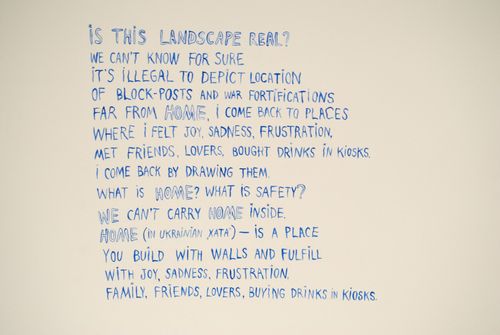 iS THiS LANDSCAPE REAL?
WE CAN'T KNOW FOR SURE
iT'S iLLEGAL TO DEPiCT LOCATiON
OF BLOCK-POSTS AND WAR FORTiFiCATiONS
FAR FROM HOME, i COME BACK TO PLACES
WHERE i FELT JOY, SADNESS, FRUSTRATiON,
MET FRiENDS, LOVERS, BOUGHT DRiNKS iN KiOSKS.
i COME BACK BY DRAWiNG THEM.
WHAT iS HOME? WHAT iS SAFETY?
WE CAN'T CARRY HOME iNSiDE.
HOME (iN UKRAiNiAN „ХАТА") — iS A PLACE
YOU BUiLD WiTH WALLS AND FULFiLL
WiTH JOY, SADNESS, FRUSTRATiON,
FAMiLY, FRiENDS, LOVERS, BUYiNG DRiNKS iN KiOSKS.